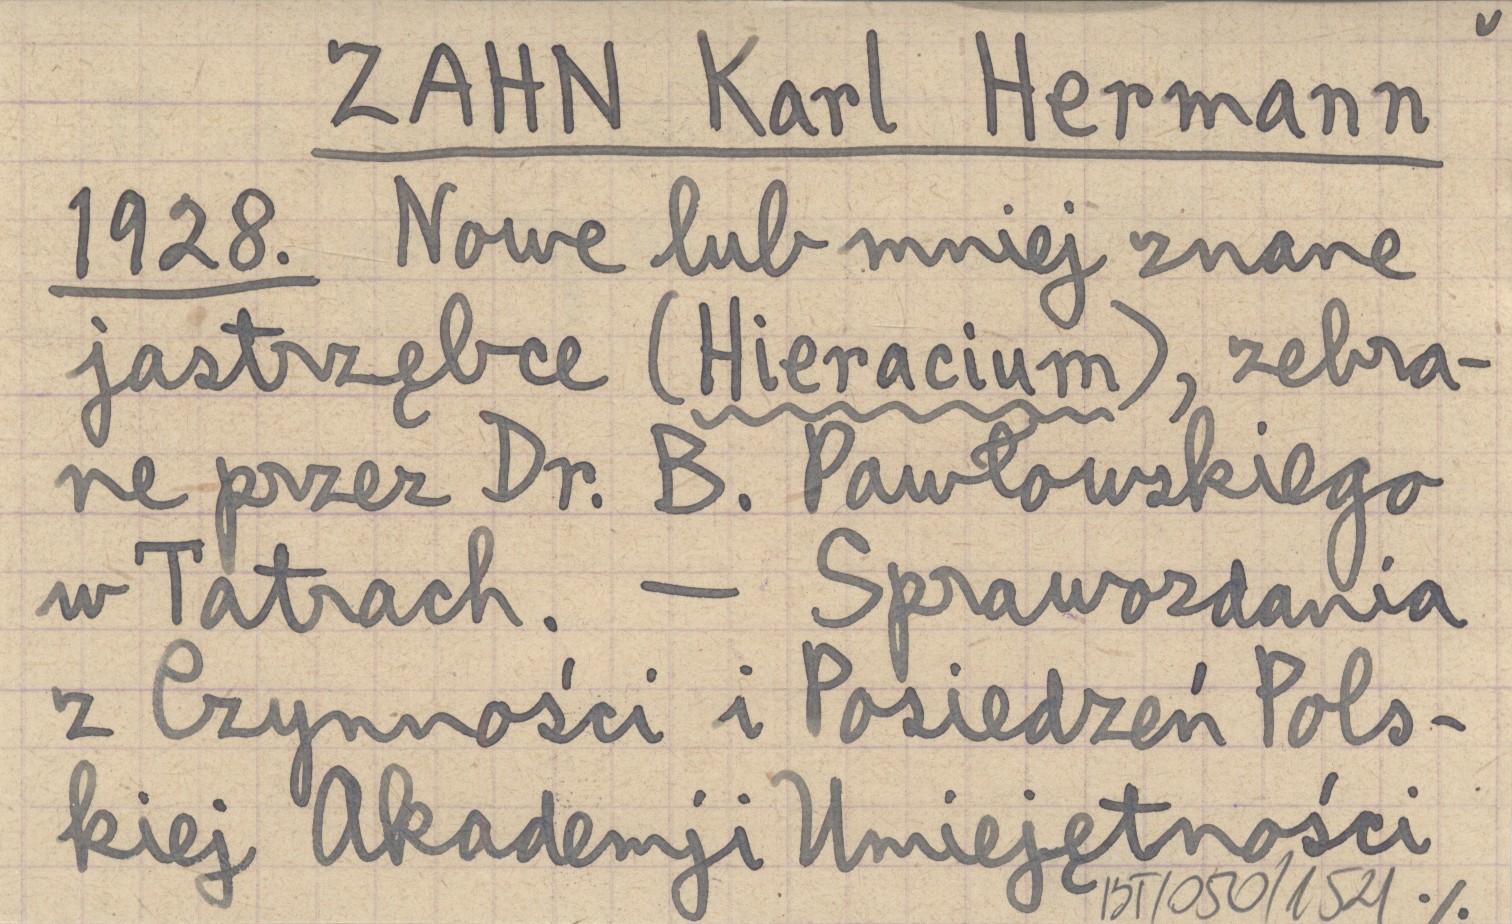 ZAHN Karl Hermann
1928. Nowe lub mniej znane
jastrzębce (Hieracium), zebra-
ne przez Dr. B. Pawłowskiego
w Tatrach. — Sprawozdania
z Czynności i Posiedzeń Pols-
kiej Akademji Umiejętności
BT/050/1521 ./.